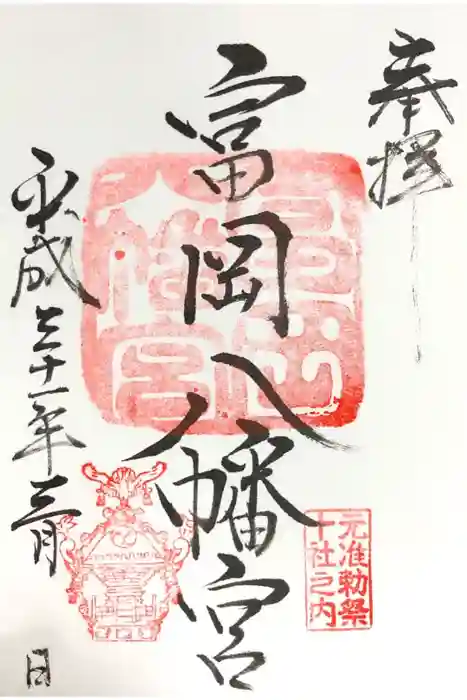 奉拝
富岡八幡宮
平成三十一年三月
日
富岡八幡宮
元准勅祭
十社之内